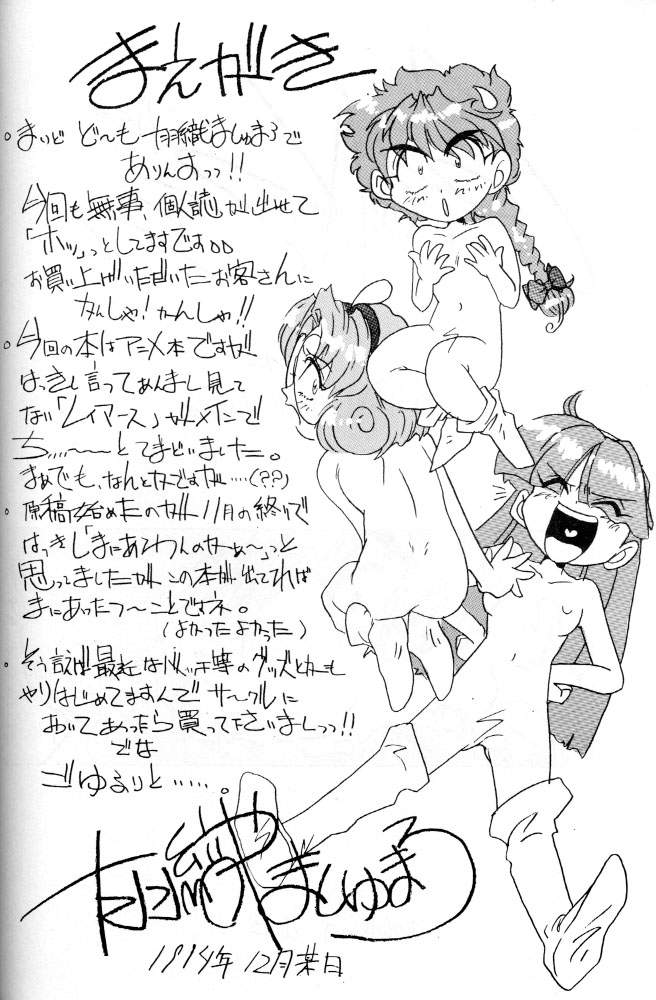 まえがき
・まいど ど〜も 羽織ましゅまろで
ありんすっっ!!
今回も無事、個人誌が出せて
「ホッ」っとしてますですoo
お買い上げいただいたお客さんに
かんしゃ!かんしゃ!!
・今回の本はアニメ本ですが
はっきし言ってあんまし見て
ない「レイアース」がメインで
ち....〜〜とまどいました。
まぁでも、なんとかですが....(??)
・原稿始めたのが11月の終りで
はっきし「まにあわんのかぁ〜」っと
思ってましたがこの本が出てれば
まにあったつ〜ことですネ。
(よかったよかった)
・そう言えば最近はバッチ等のグッズとかも
やりはじめてますんでサークルに
おいてあったら買って下さいましっっ!!
でな
ごゆるりと.....。
羽織ましゅまろ
1994年12月某日